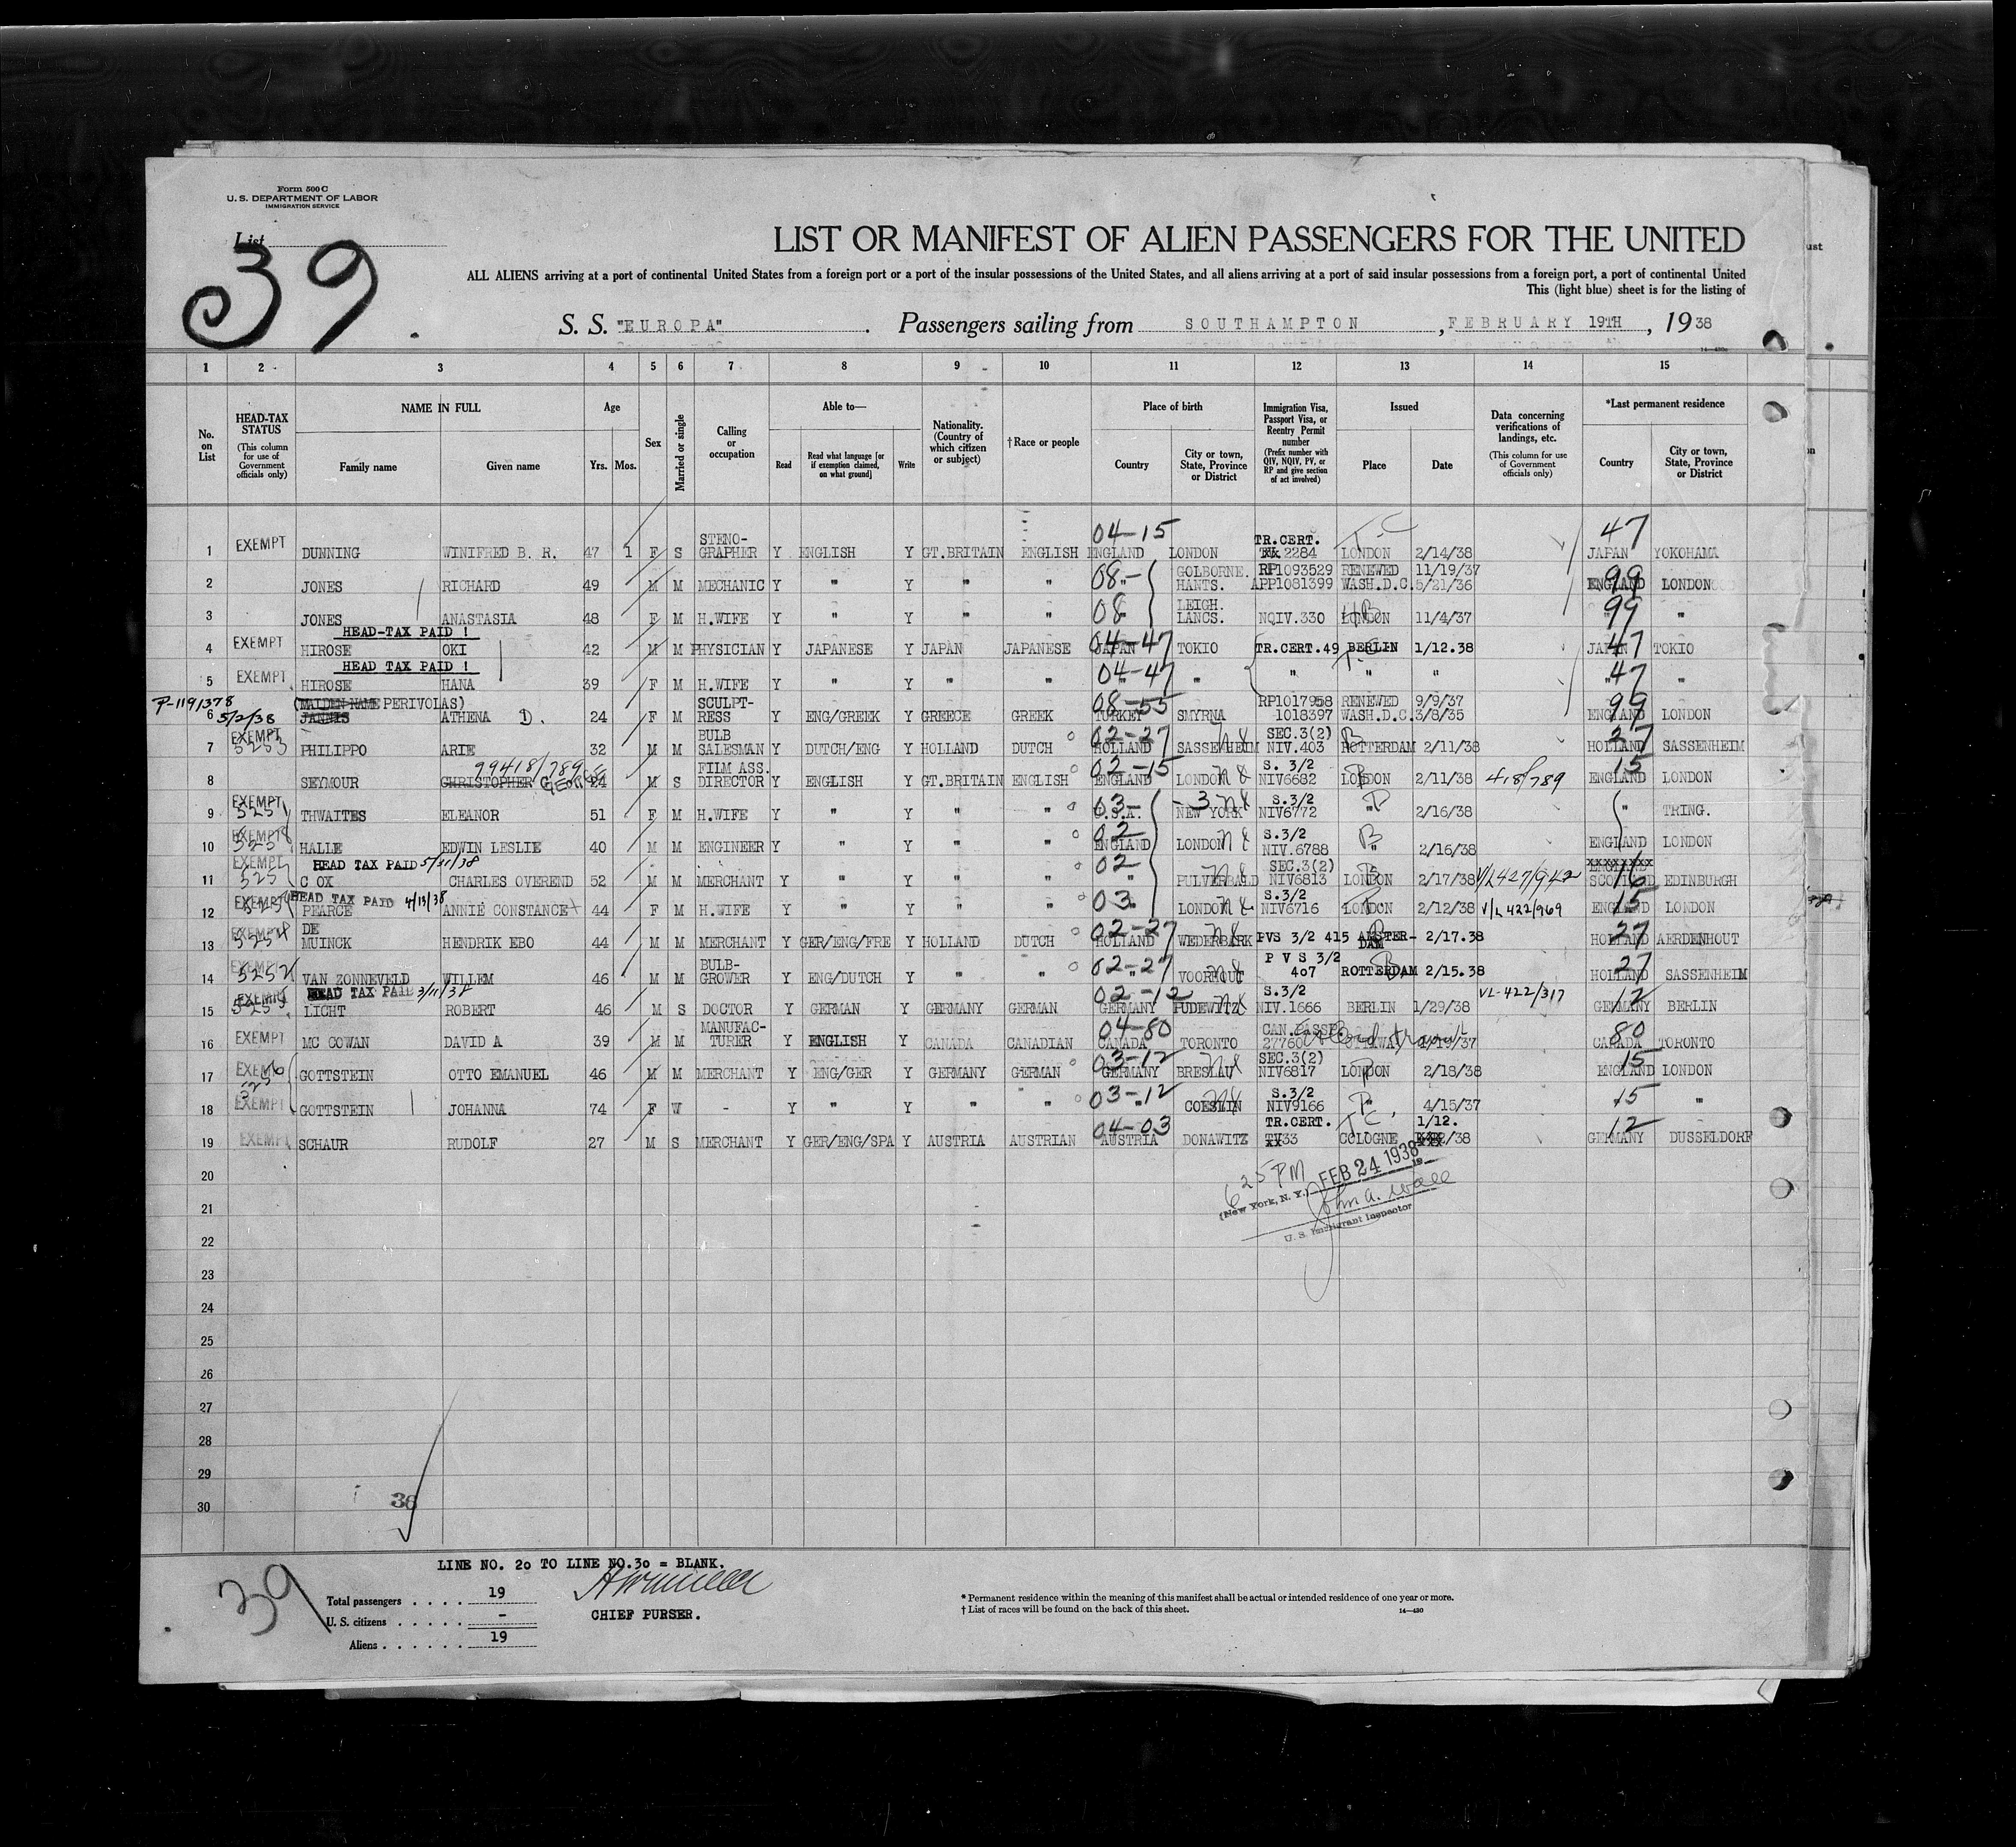 Form 500 C
U. S. DEPARTMENT OF LABOR
IMMIGRATION SERVICE
List
39
LIST OR MANIFEST OF ALIEN PASSENGERS FOR THE UNITED
ALL ALIENS arriving at a port of continental United States from a foreign port or a port of the insular possessions of the United States, and all aliens arriving at a port of said insular possessions from a foreign port, a port of continental United
This (light blue) sheet is for the listing of
S. S. "EUROPA" Passengers sailing from SOUTHAMPTON, FEBRUARY 19TH, 1938
1 2 3 4 5 6 7 8 9 10 11 12 13 14 15
No. on List
HEAD-TAX STATUS (This column for use of Government officials only)
NAME IN FULL Family name Given name
Age Yrs. Mos.
Sex
Married or single
Calling or occupation
Able to— Read Read what language [or if exemption claimed, on what ground] Write
Nationality. (Country of which citizen or subject)
†Race or people
Place of birth Country City or town, State, Province or District
Immigration Visa, Passport Visa, or Reentry Permit number (Prefix number with QIV, NQIV, PV, or RP and give section of act involved)
Issued Place Date
Data concerning verifications of landings, etc. (This column for use of Government officials only)
*Last permanent residence Country City or town, State, Province or District
1 EXEMPT DUNNING WINIFRED B. R. 47 1 F S STENO-GRAPHER Y ENGLISH Y GT.BRITAIN ENGLISH 04-15 ENGLAND LONDON TR.CERT. 2284 LONDON 2/14/38 47 JAPAN YOKOHAMA
2 JONES RICHARD 49 M M MECHANIC Y " Y " " 08- " GOLBORNE. HANTS. RP1093529 APP1081399 RENEWED WASH.D.C. 11/19/37 5/21/36 99 ENGLAND LONDON
3 JONES ANASTASIA 48 F M H.WIFE Y " Y " " 08 " LEIGH. LANCS. NQIV.330 LONDON 11/4/37 99 " "
HEAD-TAX PAID !
4 EXEMPT HIROSE OKI 42 M M PHYSICIAN Y JAPANESE Y JAPAN JAPANESE 04-47 JAPAN TOKIO TR.CERT.49 BERLIN 1/12.38 47 JAPAN TOKIO
HEAD TAX PAID !
5 EXEMPT HIROSE HANA 39 F M H.WIFE Y " Y " " 04-47 " " " " " 47 " "
P-1191378 5/2/38
6 (MAIDEN NAME PERIVOLAS) JANNIS ATHENA D. 24 F M SCULPT-RESS Y ENG/GREEK Y GREECE GREEK 08-55 TURKEY SMYRNA RP1017958 1018397 RENEWED WASH.D.C. 9/9/37 3/8/35 99 ENGLAND LONDON
7 EXEMPT 5253 PHILIPPO ARIE 32 M M BULB SALESMAN Y DUTCH/ENG Y HOLLAND DUTCH 02-27 HOLLAND SASSENHEIM SEC.3(2) NIV.403 ROTTERDAM 2/11/38 27 HOLLAND SASSENHEIM
8 SEYMOUR CHRISTOPHER GEORGE 99418/789 24 M S FILM ASS. DIRECTOR Y ENGLISH Y GT.BRITAIN ENGLISH 02-15 ENGLAND LONDON S. 3/2 NIV6682 LONDON 2/11/38 418/789 15 ENGLAND LONDON
9 EXEMPT 5251 THWAITES ELEANOR 51 F M H.WIFE Y " Y " " 03- U.S.A. NEW YORK S.3/2 NIV6772 " 2/16/38 " TRING.
10 EXEMPT HALLE EDWIN LESLIE 40 M M ENGINEER Y " Y " " 02 ENGLAND LONDON S.3/2 NIV.6788 " 2/16/38 ENGLAND LONDON
HEAD TAX PAID 5/31/38
11 EXEMPT COX CHARLES OVEREND 52 M M MERCHANT Y " Y " " 02 " SEC.3(2) NIV6813 LONDON 2/17/38 V/L427/942 16 SCOTLAND EDINBURGH
HEAD TAX PAID 4/13/38
12 EXEMPT PEARCE ANNIE CONSTANCE 44 F M H.WIFE Y " Y " " 03 " LONDON S.3/2 NIV6716 LONDON 2/12/38 V/L 422/969 15 ENGLAND LONDON
13 EXEMPT 5254 DE MUINCK HENDRIK EBO 44 M M MERCHANT Y GER/ENG/FRE Y HOLLAND DUTCH 02-27 HOLLAND PVS 3/2 415 AMSTER-DAM 2/17.38 27 HOLLAND AERDENHOUT
14 EXEMPT 5252 VAN ZONNEVELD WILLEM 46 M M BULB-GROWER Y ENG/DUTCH Y " " 02-27 " VOORHOUT P V S 3/2 407 ROTTERDAM 2/15.38 27 HOLLAND SASSENHEIM
HEAD TAX PAID 3/11/38
15 EXEMPT 5255 LICHT ROBERT 46 M S DOCTOR Y GERMAN Y GERMANY GERMAN 02-12 GERMANY PUDEWITZ S.3/2 NIV.1666 BERLIN 1/29/38 VL-422/317 12 GERMANY BERLIN
16 EXEMPT MC COWAN DAVID A 39 M M MANUFAC-TURER Y ENGLISH Y CANADA CANADIAN 04-80 CANADA TORONTO CAN.PASSP. 27760 80 CANADA TORONTO
17 EXEMPT 5256 GOTTSTEIN OTTO EMANUEL 46 M M MERCHANT Y ENG/GER Y GERMANY GERMAN 03-12 GERMANY BRESLAU SEC.3(2) NIV6817 LONDON 2/18/38 15 ENGLAND LONDON
18 EXEMPT GOTTSTEIN JOHANNA 74 F W - Y " Y " " 03-12 " COESLIN S.3/2 NIV9166 " 4/15/37 15 "
19 EXEMPT SCHAUR RUDOLF 27 M S MERCHANT Y GER/ENG/SPA Y AUSTRIA AUSTRIAN 04-03 AUSTRIA DONAWITZ TR.CERT. 33 COLOGNE 1/12. /38 12 GERMANY DUSSELDORF
20
6 25 PM FEB 24 1938
(New York, N. Y.)
John A. Wall
U. S. Immigrant Inspector
21
22
23
24
25
26
27
28
29
30
36
LINE NO. 20 TO LINE NO.30 = BLANK.
39
Total passengers 19
U. S. citizens -
Aliens 19
CHIEF PURSER.
* Permanent residence within the meaning of this manifest shall be actual or intended residence of one year or more.
† List of races will be found on the back of this sheet. 14—430